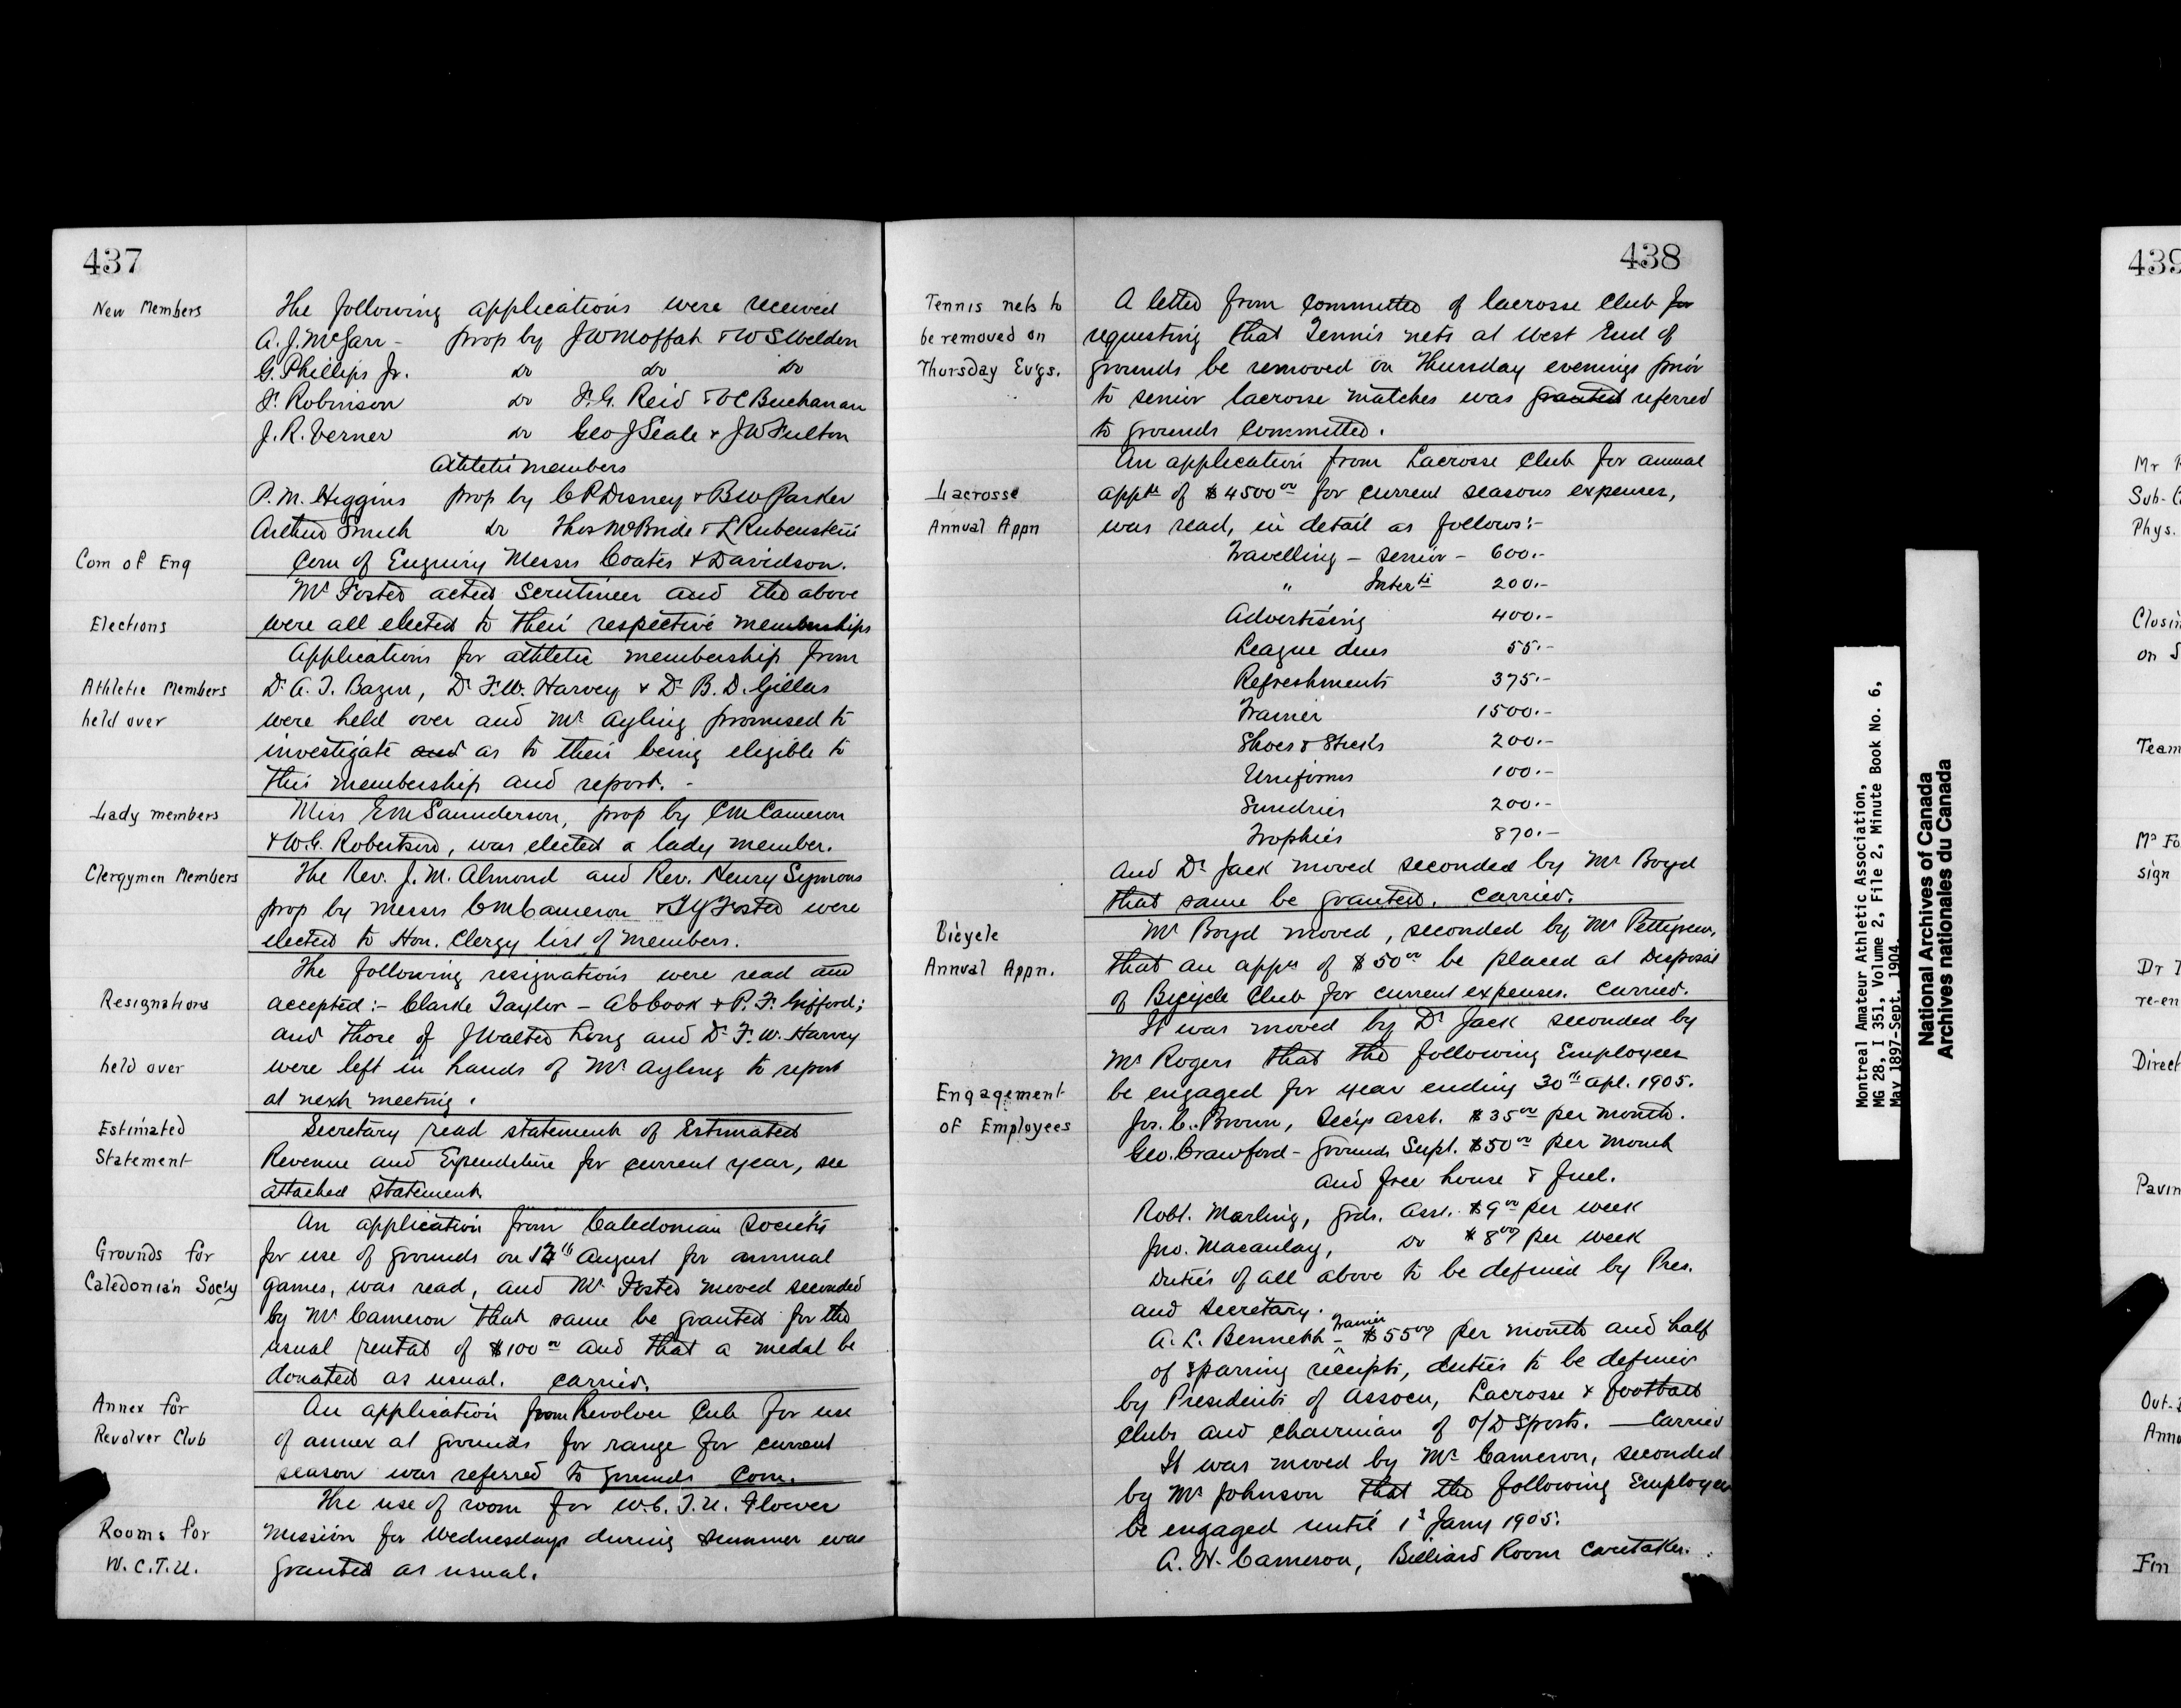 437
New Members
The following applications were received
A. J. McGarr - prop by J W Moffat & W S Weldon
G. Phillips Jr. do do do
F. Robinson do F. G. Reid & W C Buchanan
J. R. Verner do Geo J Seale & J W Fulton
Athletic members
P. M. Higgins prop by C P Disney & B W Parker
Arthur Smith do Thos McBride & L Rubenstein
Com of Enq
Com of Enquiry Messrs Coates & Davidson.
Mr Foster acted Scrutineer and the above
Elections
were all elected to their respective memberships
Applications for athletic membership from
Athletic Members
Dr A. T. Bazin, Dr F. W. Harvey & Dr B. D. Gillies
held over
were held over and Mr Ayling promised to
investigate and as to their being eligible to
this membership and report. -
Lady members
Miss E M Saunderson, prop by C M Cameron
& W. G. Robertson, was elected a lady member.
Clergymen Members
The Rev. J. M. Almond and Rev. Henry Symons
prop by Messrs C M Cameron & T Y Foster were
elected to Hon. Clergy list of members.
The following resignations were read and
Resignations
accepted:- Clarke Taylor - A C Cook & P. F. Gifford;
and those of J Walter Long and Dr F. W. Harvey
held over
were left in hands of Mr Ayling to report
at next meeting.
Estimated
Secretary read statement of Estimated
Statement
Revenue and Expenditure for current year, see
attached statement.
An application from Caledonian Society
Grounds for
for use of grounds on 13th August for annual
Caledonian Soc'y
games, was read, and Mr Foster moved seconded
by Mr Cameron that same be granted for the
usual rental of $100 00 and that a medal be
donated as usual. Carried.
Annex for
An application from Revolver Club for use
Revolver Club
of annex at grounds for range for current
season was referred to grounds Com.
The use of room for W.C.T.U. Flower
Rooms for
Mission for Wednesdays during summer was
W.C.T.U.
granted as usual.
438
Tennis nets to
A letter from committee of lacrosse club for
be removed on
requesting that Tennis nets at West End of
Thursday Ev'gs.
grounds be removed on Thursday evenings prior
to senior lacrosse matches was granted referred
to grounds committee.
An application from Lacrosse Club for annual
Lacrosse
appn of $4500 00 for current seasons expenses,
Annual Appn
was read, in detail as follows:-
Travelling - senior - 600.-
" Inter te 200.-
Advertising 400.-
League dues 55.-
Refreshments 375.-
Trainer 1500.-
Shoes & Sticks 200.-
Uniforms 100.-
Sundries 200.-
Trophies 870.-
and Dr Jack moved seconded by Mr Boyd
that same be granted. Carried.
Bicycle
Mr Boyd moved, seconded by Mr Pettigrew,
Annual Appn.
that an appn of $50 00 be placed at disposal
of Bicycle Club for current expenses. Carried.
It was moved by Dr Jack seconded by
Mr Rogers that the following Employees
Engagement
be engaged for year ending 30th Apl. 1905.
of Employees
Jos. C. Brown, Sec'ys asst. $35 00 per month.
Geo. Crawford - grounds Supt. $50 00 per month
and free house & fuel.
Robt. Marling, grds. asst. $9 00 per week
Jno. Macaulay, do $8 00 per week
Duties of all above to be defined by Pres.
and Secretary.
A. L. Bennett - Trainer $55 00 per month and half
of sparring receipts, duties to be defined
by Presidents of Assocn, Lacrosse & football
Clubs and Chairman of O/D Sports. - Carried
It was moved by Mr Cameron, seconded
by Mr Johnson that the following Employees
be engaged until 1st Jany 1905.
A. H. Cameron, Billiard Room Caretaker.
Montreal Amateur Athletic Association,
MG 28, I 351, Volume 2, File 2, Minute Book No. 6,
May 1897-Sept. 1904.
National Archives of Canada
Archives nationales du Canada
439
Mr
Sub-
Phys.
on
Team
Mr Fo
sign
Dr
re-en
Direct
Pavin
Out-
Ann
Fin